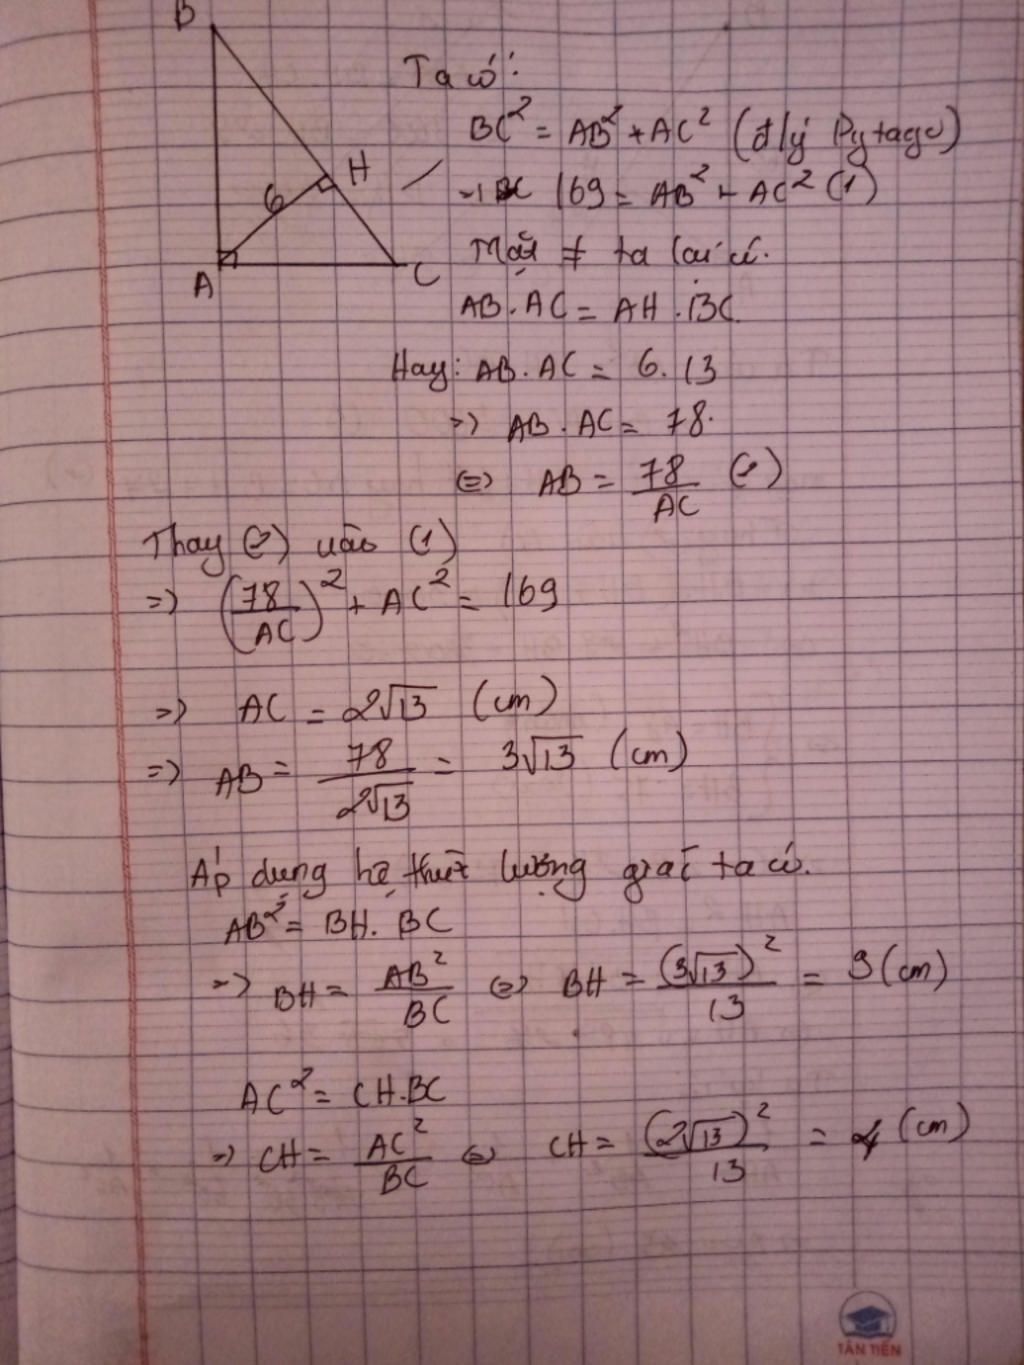 B
H
6
A
C
Ta có:
BC² = AB² + AC² (đ/lý Pytago)
169 = AB² + AC² (1)
Mặt ≠ ta lại có.
AB . AC = AH . BC
Hay: AB . AC = 6 . 13
=> AB . AC = 78.
<=> AB = 78/AC (2)
Thay (2) vào (1)
=> (78/AC)² + AC² = 169
=> AC = 2√13 (cm)
=> AB = 78/2√13 = 3√13 (cm)
Áp dụng hệ thức lượng giác ta có.
AB² = BH . BC
=> BH = AB²/BC <=> BH = (3√13)²/13 = 9 (cm)
AC² = CH . BC
=> CH = AC²/BC <=> CH = (2√13)²/13 = 4 (cm)
TÂN TIẾN